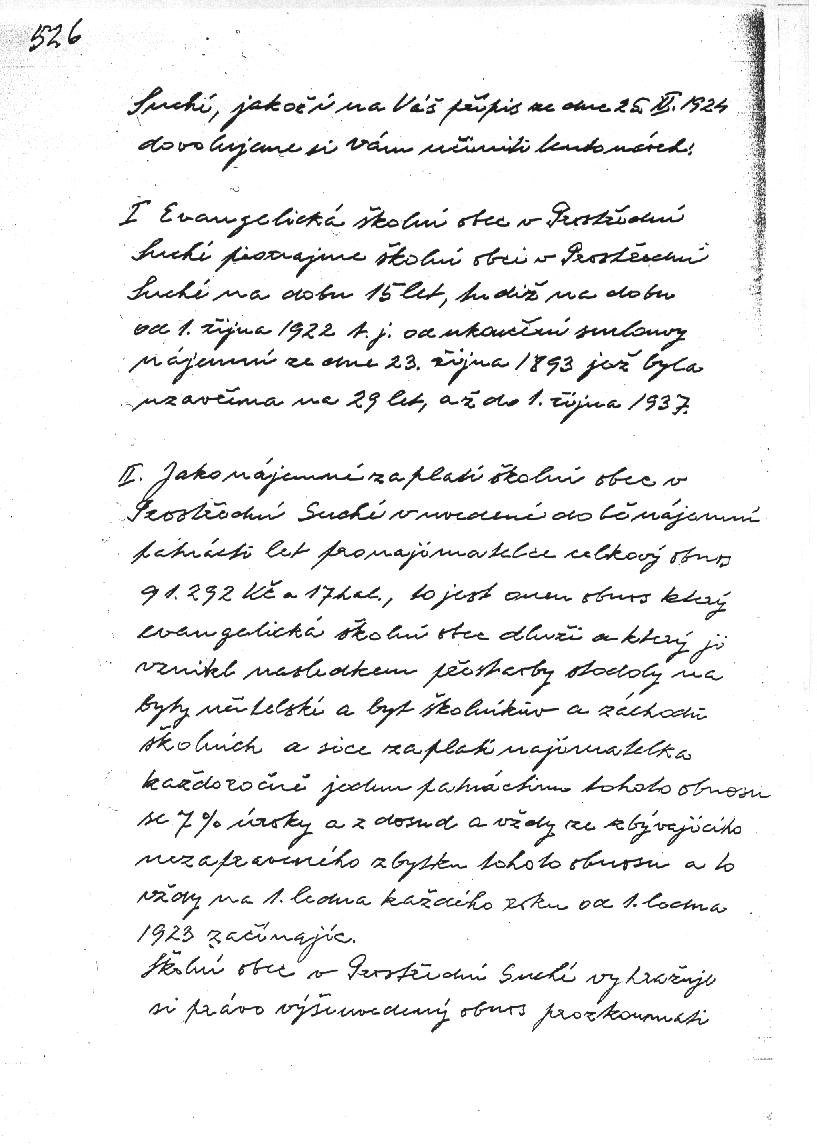 526
Suché, jakož i na Váš přípis ze dne 25. VI. 1924
dovolujeme si Vám učiniti tento návrh:
I Evangelická školní obec v Prostřední
Suché pronajme školní obci v Prostřední
Suché na dobu 15 let, tudiž na dobu
od 1. října 1922 t. j. od ukončení smlouvy
nájemní ze dne 23. října 1893 jež byla
uzavřena na 29 let, až do 1. října 1937.
II. Jako nájemné zaplatí školní obec v
Prostřední Suché v uvedené době nájemní
patnácti let pronajímatelce celkový obnos
91.292 Kč a 17 hal., to jest onen obnos který
evangelická školní obec dluží a který jí
vznikl následkem přestavby stodoly na
byty učitelské a byt školníkův a záchodů
školních a sice zaplatí najímatelka
každoročně jednu patnáctinu tohoto obnosu
se 7% úroky a z dosud a vždy ze zbývajícího
nezapraveného zbytku tohoto obnosu a to
vždy na 1. ledna každého roku od 1. ledna
1923 začínajíc.
Školní obec v Prostřední Suché vyhražuje
si právo výšeuvedený obnos prozkoumati